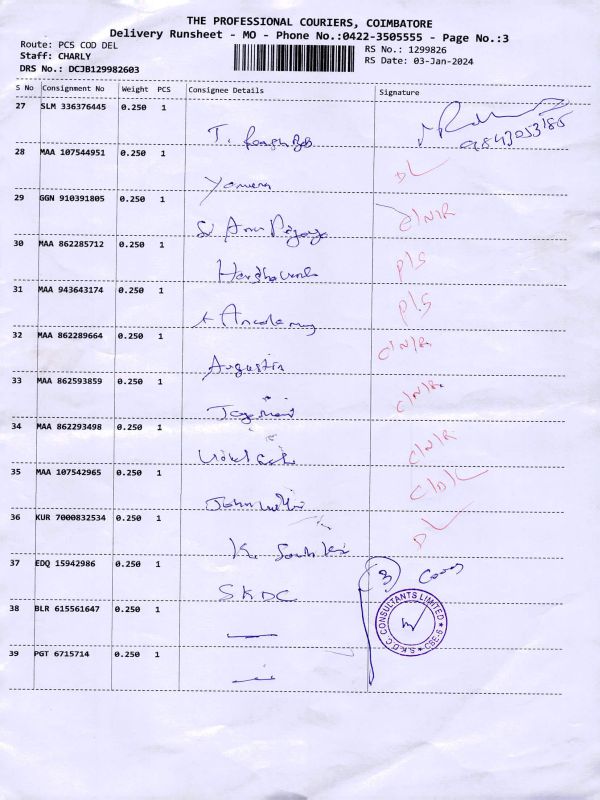 THE PROFESSIONAL COURIERS, COIMBATORE
Delivery Runsheet - MO - Phone No.:0422-3505555 - Page No.:3
Route: PCS COD DEL
RS No.: 1299826
Staff: CHARLY
RS Date: 03-Jan-2024
DRS No.: DCJB129982603
S No Consignment No Weight PCS Consignee Details Signature
27 SLM 336376445 0.250 1
9843053186
28 MAA 107544951 0.250 1
DL
29 GGN 910391805 0.250 1
C/N/R
30 MAA 862285712 0.250 1
P/S
31 MAA 943643174 0.250 1
P/S
32 MAA 862289664 0.250 1
Augustin C/N/R
33 MAA 862593859 0.250 1
C/N/R
34 MAA 862293498 0.250 1
C/N/R
35 MAA 107542965 0.250 1
C/D/L
36 KUR 7000832534 0.250 1
K. DL
37 EDQ 15942986 0.250 1
SKDC 3
38 BLR 615561647 0.250 1
S.K.D.C. CONSULTANTS LIMITED ★ CBE-6 ★
39 PGT 6715714 0.250 1